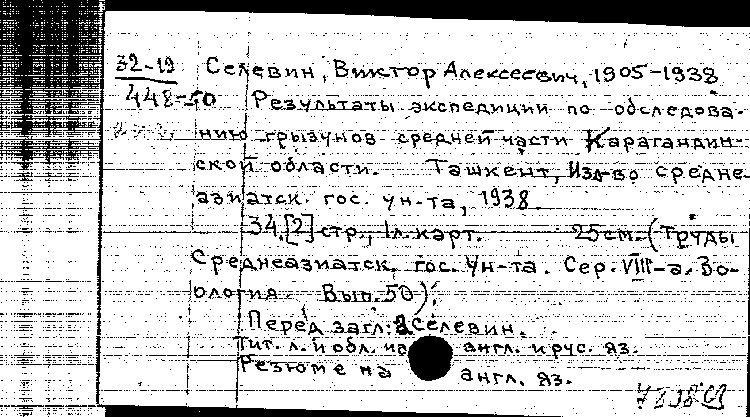 32-19 Селевин, Виктор Алексеевич, 1905-1938
448-50 Результаты экспедиции по обследова-
нию грызунов средней части Карагандин-
ской области. Ташкент, Изд-во средне-
азиатск. гос. ун-та, 1938.
34,[2] стр., 1 л. карт. 25 см. (Труды
Среднеазиатск. гос. Ун-та. Сер. VIII-а. Зо-
ология. Вып. 50).
Перед загл.: Селевин.
Тит. л. и обл. на англ. и рус. яз.
Резюме на англ. яз.